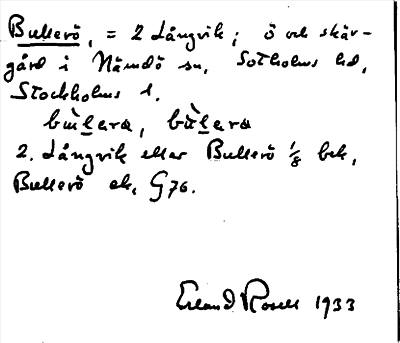 Bullerö, = 2 Långvik; ö och skär-
gård i Nämdö sn, Sotholms hd,
Stockholms l.
bùlera, bùlera
2. Långvik eller Bullerö 1/8 bek,
Bullerö ek, G76.
Erland Rosell 1933